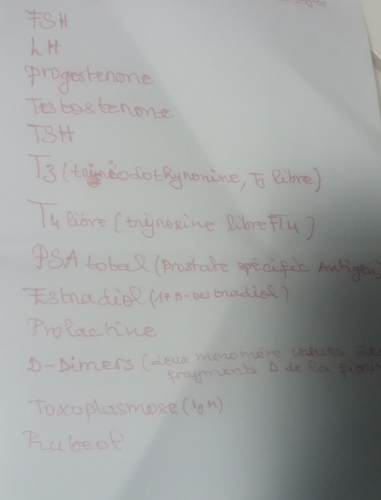 FSH
LH
progesterone
Testosterone
TSH
T3 (triiodothyronine, T3 libre)
T4 libre (thyroxine libre FT4)
PSA total (Prostate spécific Antigen)
Estradiol (17 B-oestradiol)
Prolactine
D-Dimers (deux monomère
fragments D de la
Toxoplasmose (Ig M)
Rubeol